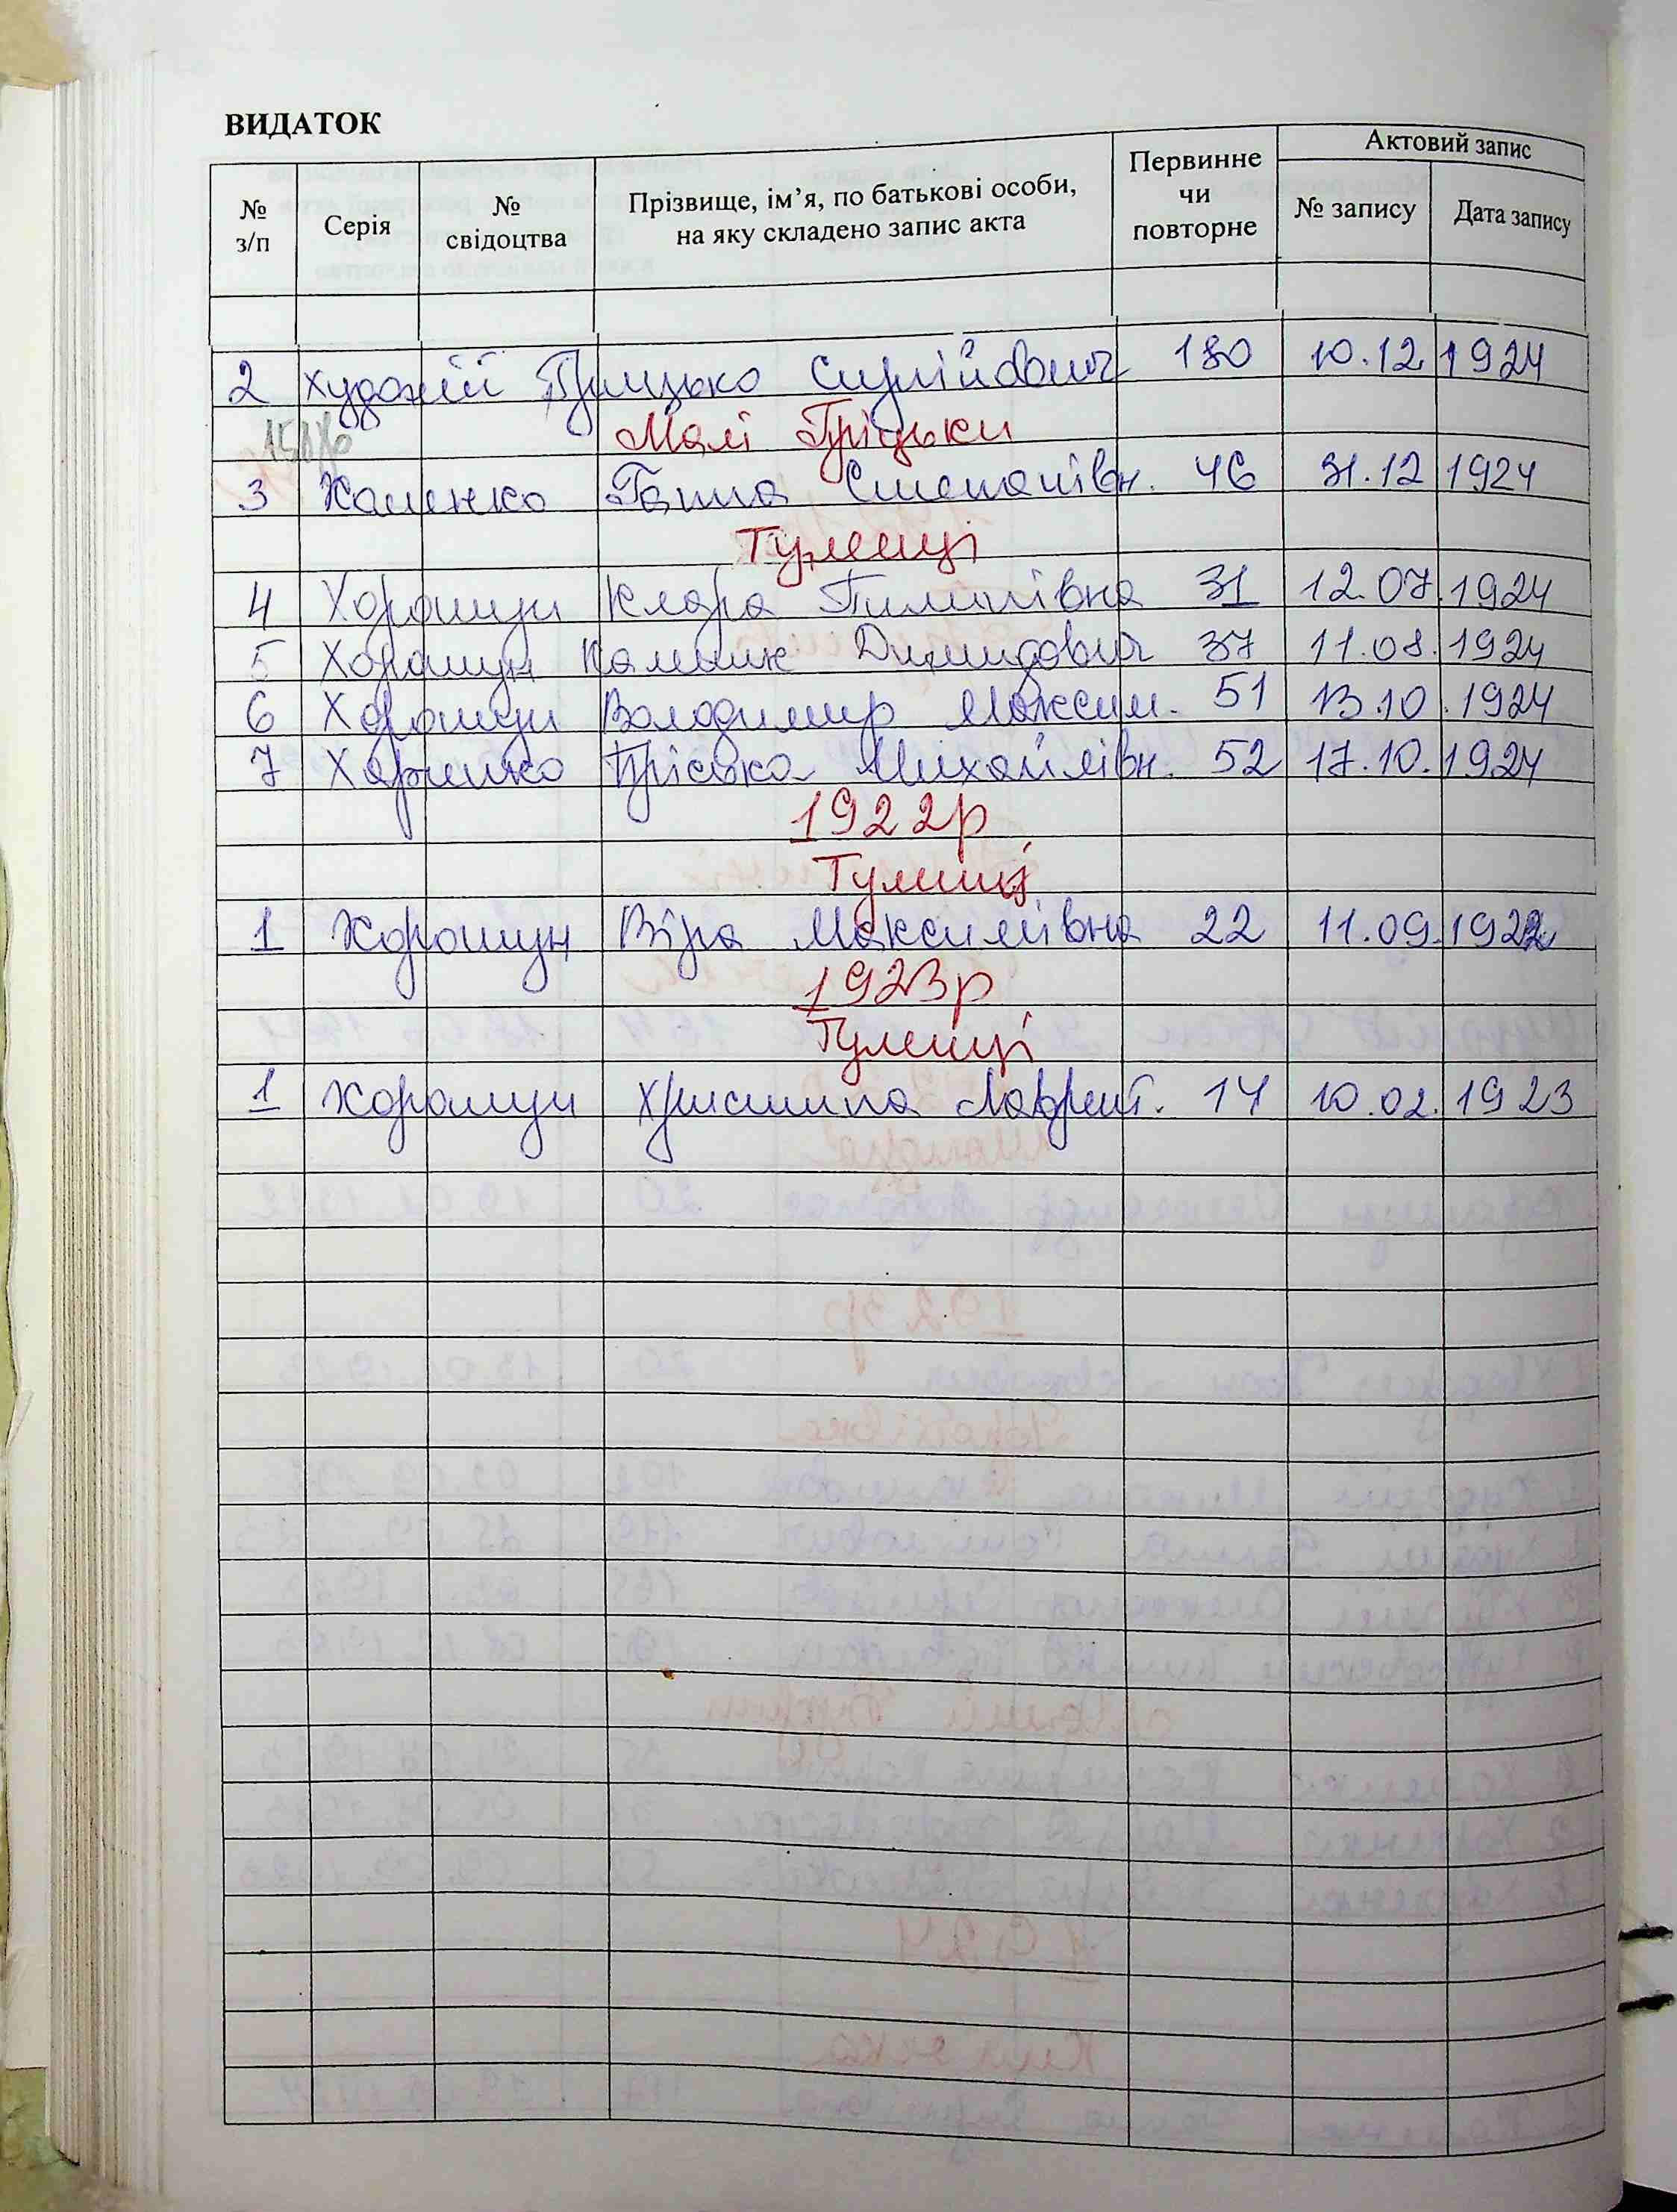 ВИДАТОК
№ з/п Серія № свідоцтва Прізвище, ім’я, по батькові особи, на яку складено запис акта Первинне чи повторне Актовий запис № запису Дата запису
2 Худолій Грицько Сергійович 180 10.12 1924
Малі Гріцьки
3 Хоменко Ганна Степанівн. 46 31.12 1924
Тулинці
4 Хорошун Клара Пилипівна 31 12.07.1924
5 Хорошун Демидович 37 11.08.1924
6 Хорошун Володимир Максим. 51 13.10.1924
7 Харченко Пріська Михайлівн. 52 17.10.1924
1922р
Тулинці
1 Хорошун Віра Максимівна 22 11.09.1922
1923р
Тулинці
1 Хорошун Христина Лаврент. 14 10.02.1923